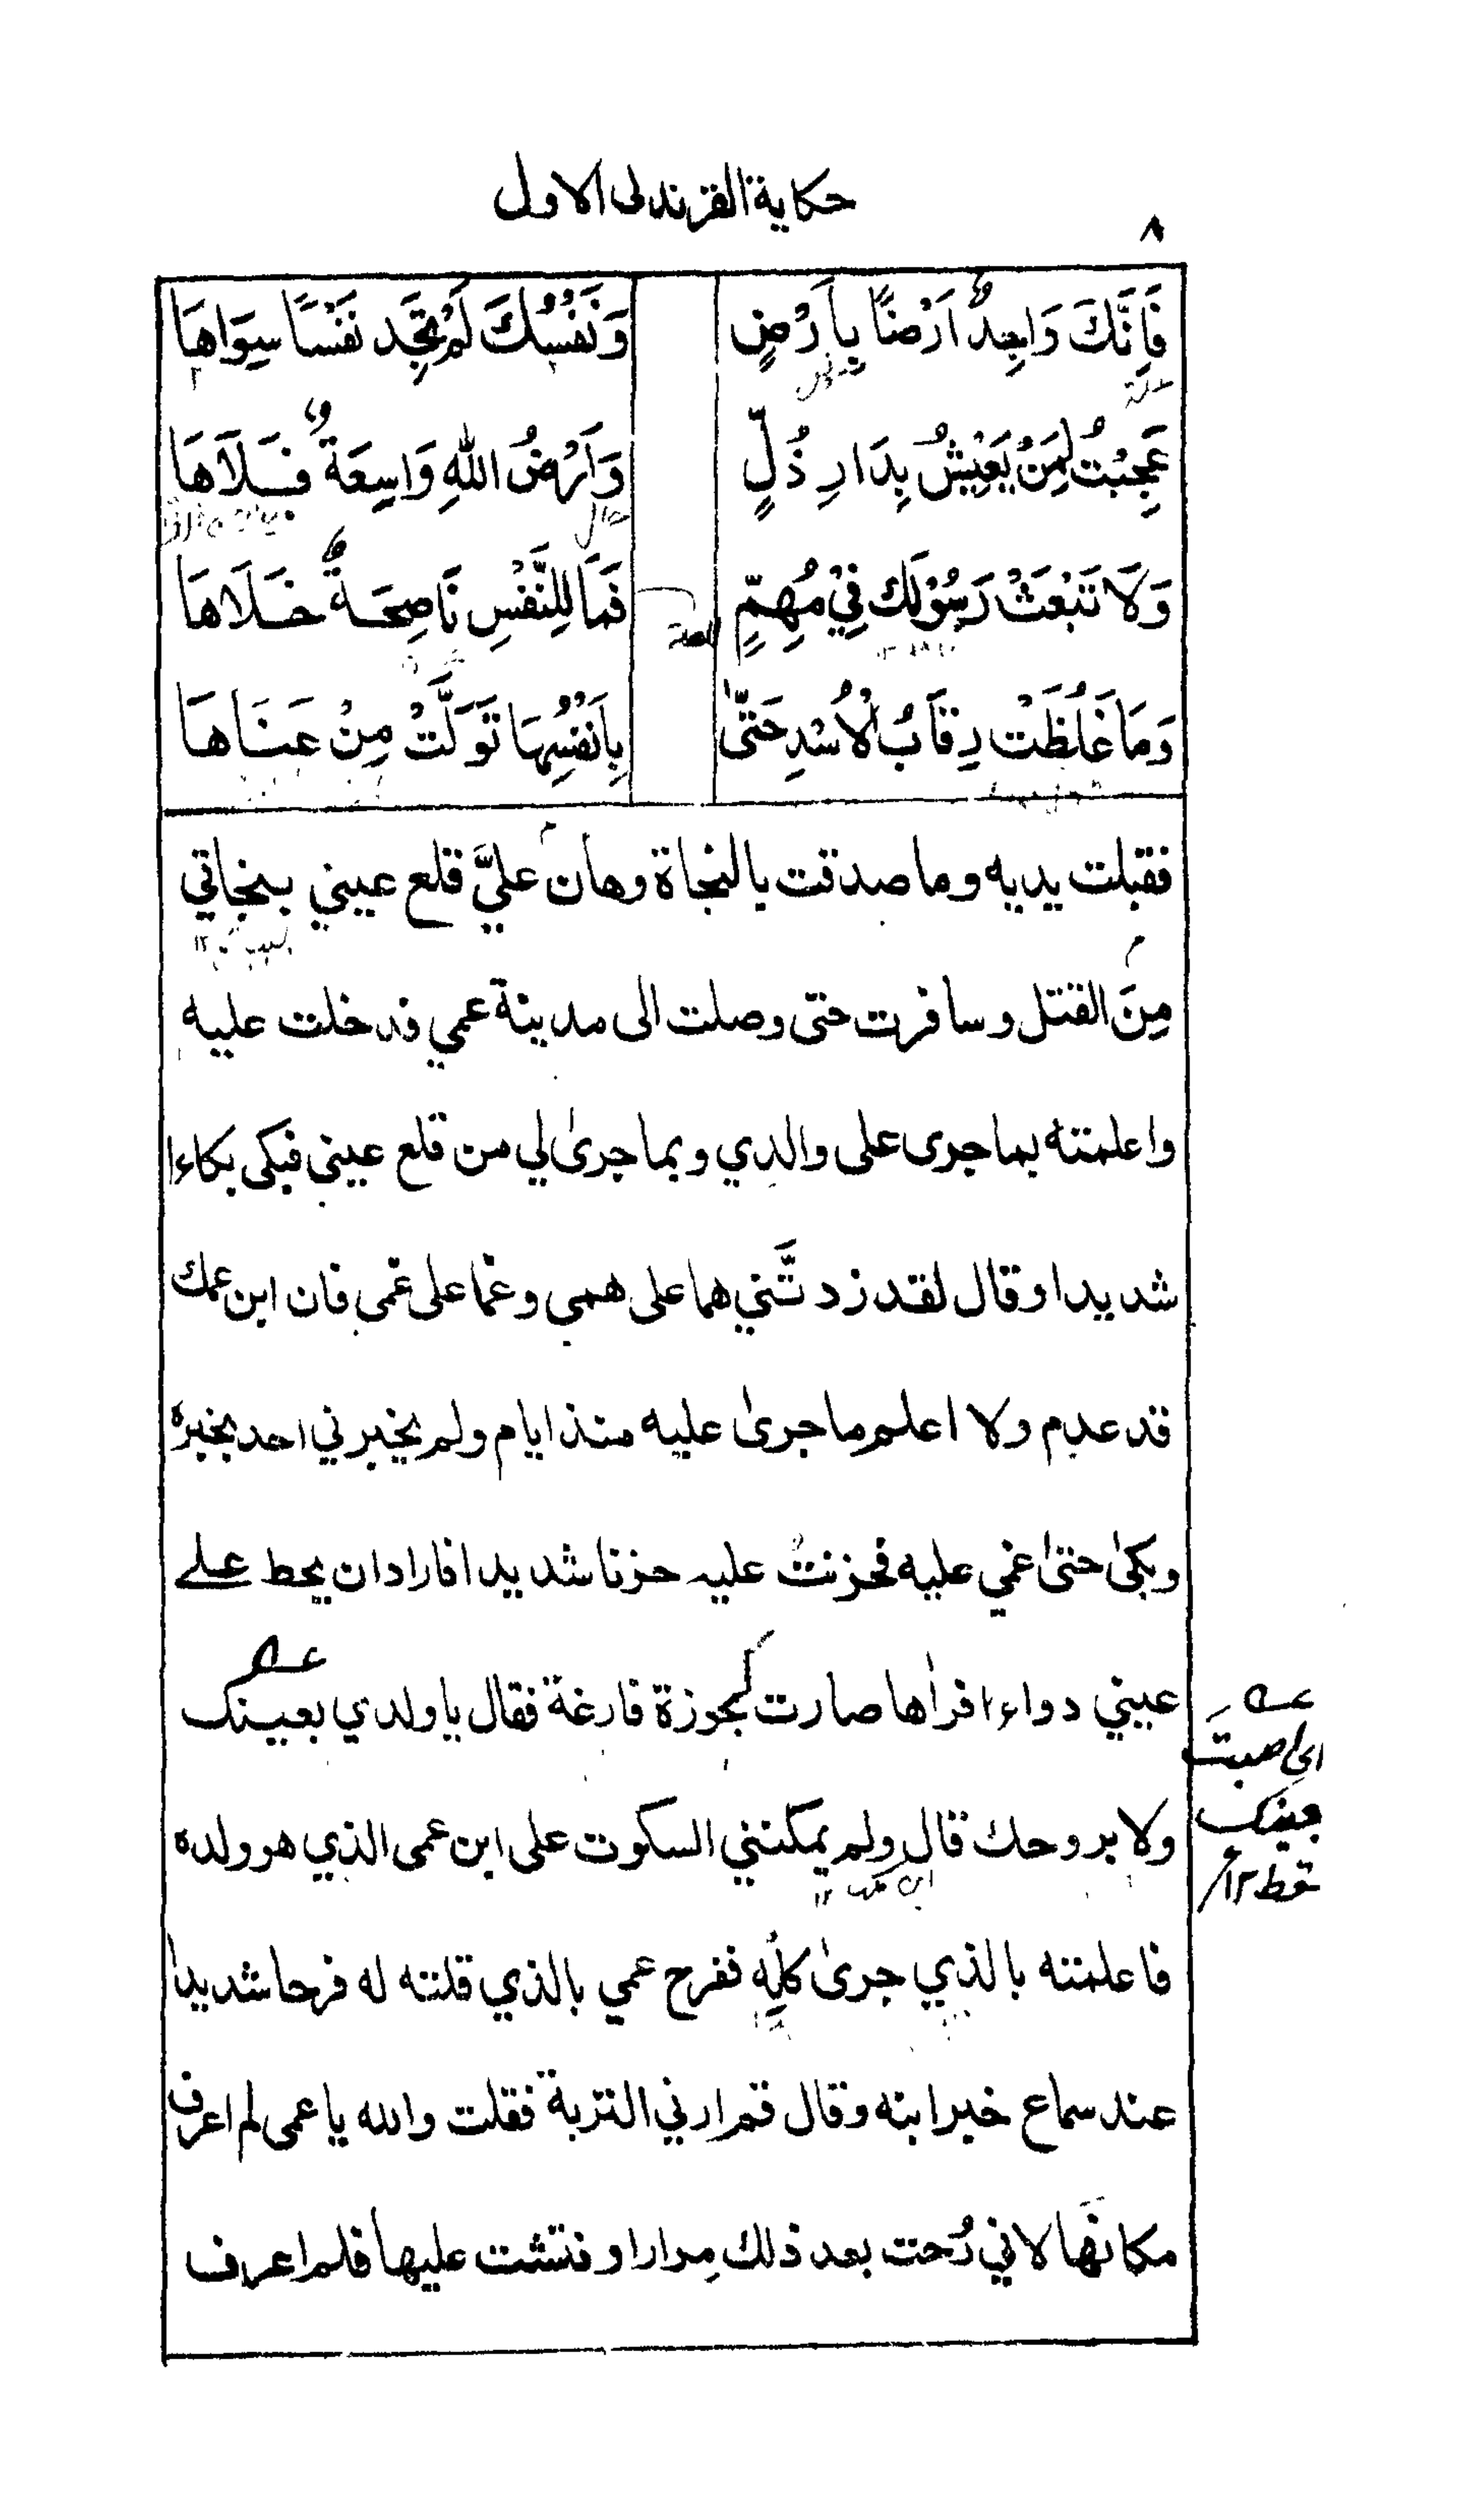 حكاية القرندلى الاول
٨
فَاِنَّكَ وَاجِدٌ اَرْضًا بِاَرْضٍ وَنَفْسُكَ لَمْ تَجِدْ نَفْسًا سِوَاهَا
عَجِبْتُ لِمَنْ يَعِيْشُ بِدَارِ ذُلٍّ وَاَرْضُ اللهِ وَاسِعَةٌ فَلَاهَا
وَلَا تَبْعَثْ رَسُوْلَكَ فِيْ مُهِمٍّ فَمَا لِلنَّفْسِ نَاصِحَةٌ خَلَاهَا
وَمَا غَلُظَتْ رِقَابُ الْاُسْدِ حَتّٰى بِاَنْفُسِهَا تَوَلَّتْ مِنْ عَنَاهَا
فقبلت يديه وما صدقت بالنجاة وهان عليَّ قلع عيني بنجاتي
مِنَ القتل وسافرت حتى وصلت الى مدينة عمي فدخلت عليه
واعلمته بما جرى على والدي وبما جرىٰ لي من قلع عيني فبكى بكاءا
شديدا وقال لقد زدتَّني هما على همي وغما على غمى فان ابن عمك
قد عدم ولا اعلم ما جرىٰ عليه منذ ايام ولم يخبرني احد بخبره
وبكىٰ حتىٰ اغمي عليه فحزنتُ عليه حزنا شديدا فاراد ان يحط على
عيني دواءا فراٰها صارت كجوزة فارغة فقال يا ولدي بعينك
ولا بروحك قال ولم يمكنني السكوت على ابن عمى الذي هو ولده
فاعلمته بالذي جرىٰ كلِّه ففرح عمي بالذي قلته له فرحا شديدا
عند سماع خبر ابنه وقال قم ارني التربة فقلت والله يا عمى لم اعرف
مكانَها لاني رُحت بعد ذلك مِرارا وفتشت عليها فلم اعرف
اى اصبتَ
بعينك
فقط ١٢